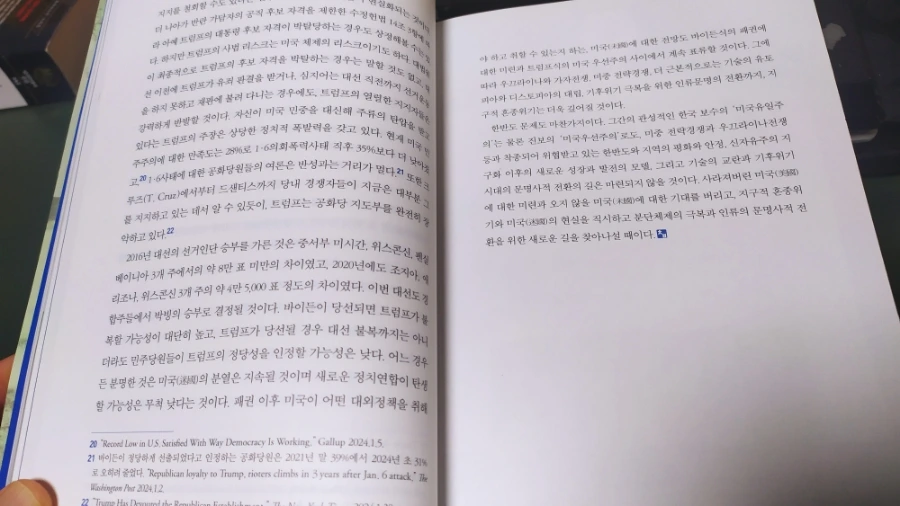 지지를 철회할 수도 있다는
더 나아가 반란 가담자의 공직 후보 자격을 제한한 수정헌법 14조 3항에
라 아예 트럼프의 대통령 후보 자격이 박탈당하는 경우도 상정해볼 수는 있
다. 하지만 트럼프의 사법 리스크는 미국 체제의 리스크이기도 하다. 대법원
이 최종적으로 트럼프의 후보 자격을 박탈하는 경우는 말할 것도 없고,
선 이전에 트럼프가 유죄 판결을 받거나, 심지어는 대선 직전까지 선거운동
을 하지 못하고 재판에 불려 다니는 경우에도, 트럼프의 열렬한 지지자들은
강력하게 반발할 것이다. 자신이 미국 민중을 대신해 주류의 탄압을 받고
있다는 트럼프의 주장은 상당한 정치적 폭발력을 갖고 있다. 현재 미국 민
주주의에 대한 만족도는 28%로 1·6의회폭력사태 직후 35%보다 더 낮아졌
고20 1·6사태에 대한 공화당원들의 여론은 반성과는 거리가 멀다.21 또한 크
루즈(T. Cruz)에서부터 드샌티스까지 당내 경쟁자들이 지금은 대부분 그
를 지지하고 있는 데서 알 수 있듯이, 트럼프는 공화당 지도부를 완전히 장
악하고 있다.22
2016년 대선의 선거인단 승부를 가른 것은 중서부 미시간, 위스콘신, 펜실
베이니아 3개 주에서의 약 8만 표 미만의 차이였고, 2020년에도 조지아, 애
리조나, 위스콘신 3개 주의 약 4만 5,000 표 정도의 차이였다. 이번 대선도 경
합주들에서 박빙의 승부로 결정될 것이다. 바이든이 당선되면 트럼프가 불
복할 가능성이 대단히 높고, 트럼프가 당선될 경우 대선 불복까지는 아니
더라도 민주당원들이 트럼프의 정당성을 인정할 가능성은 낮다. 어느 경우
든 분명한 것은 미국(迷國)의 분열은 지속될 것이며 새로운 정치연합이 탄생
할 가능성은 무척 낮다는 것이다. 패권 이후 미국이 어떤 대외정책을 취해
20 “Record Low in U.S. Satisfied With Way Democracy Is Working,” Gallup 2024.1.5.
21 바이든이 정당하게 선출되었다고 인정하는 공화당원은 2021년 말 39%에서 2024년 초 31%
로 오히려 줄었다. “Republican loyalty to Trump, rioters climbs in 3 years after Jan. 6 attack,” The
Washington Post 2024.1.2.
22 “Trump Has Devoured the Republican Establishment,”
야 하고 취할 수 있는지 하는, 미국(美國)에 대한 전망도 바이든식의 패권에
대한 미련과 트럼프식의 미국 우선주의 사이에서 계속 표류할 것이다. 그에
따라 우끄라이나와 가자전쟁, 미중 전략경쟁, 더 근본적으로는 기술의 유토
피아와 디스토피아의 대립, 기후위기 극복을 위한 인류문명의 전환까지, 지
구적 혼종위기는 더욱 깊어질 것이다.
한반도 문제도 마찬가지이다. 그간의 관성적인 한국 보수의 ‘미국유일주
의’는 물론 진보의 ‘미국우선주의’로도, 미중 전략경쟁과 우끄라이나전쟁
등과 착종되어 위협받고 있는 한반도와 지역의 평화와 안정, 신자유주의 지
구화 이후의 새로운 성장과 발전의 모델, 그리고 기술의 교란과 기후위기
시대의 문명사적 전환의 길은 마련되지 않을 것이다. 사라져버린 미국(美國)
에 대한 미련과 오지 않을 미국(未國)에 대한 기대를 버리고, 지구적 혼종위
기와 미국(迷國)의 현실을 직시하고 분단체제의 극복과 인류의 문명사적 전
환을 위한 새로운 길을 찾아나설 때이다.